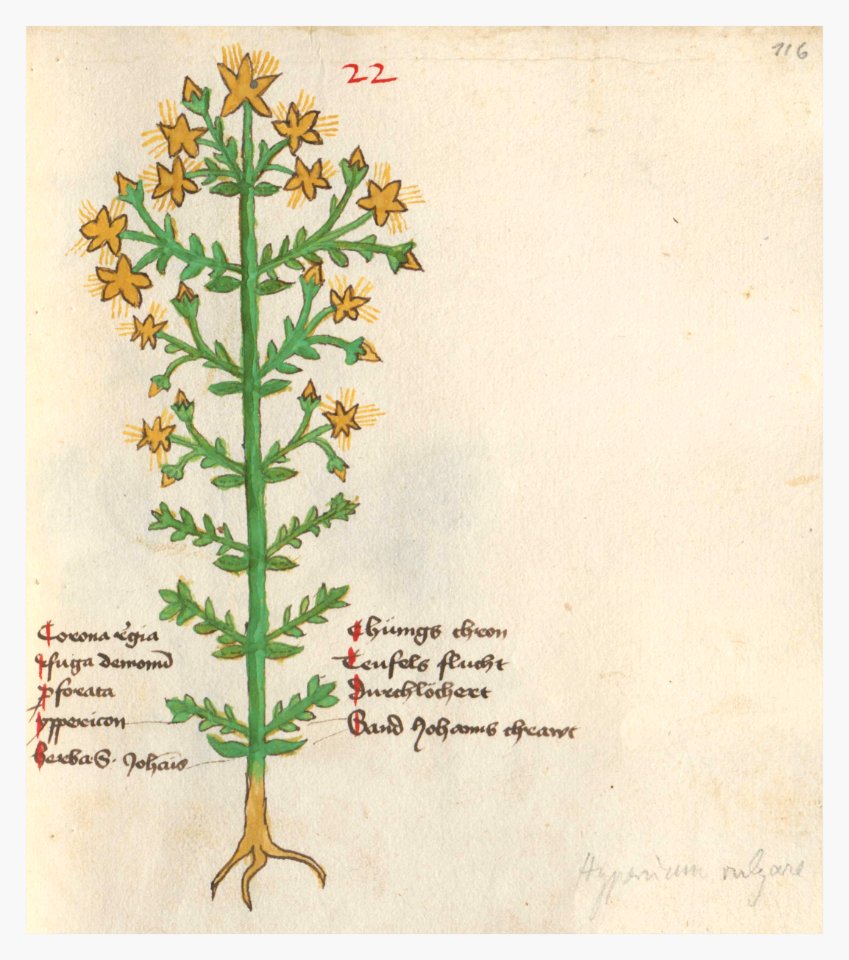 116
22
Corona r̄gia
ffuga demonū
pforata
yppericon
herba S. Joh̄is
Chüngs chron
Teufels flucht
Durchlöchert
Sand Johanns chrawt
Hypericum vulgare